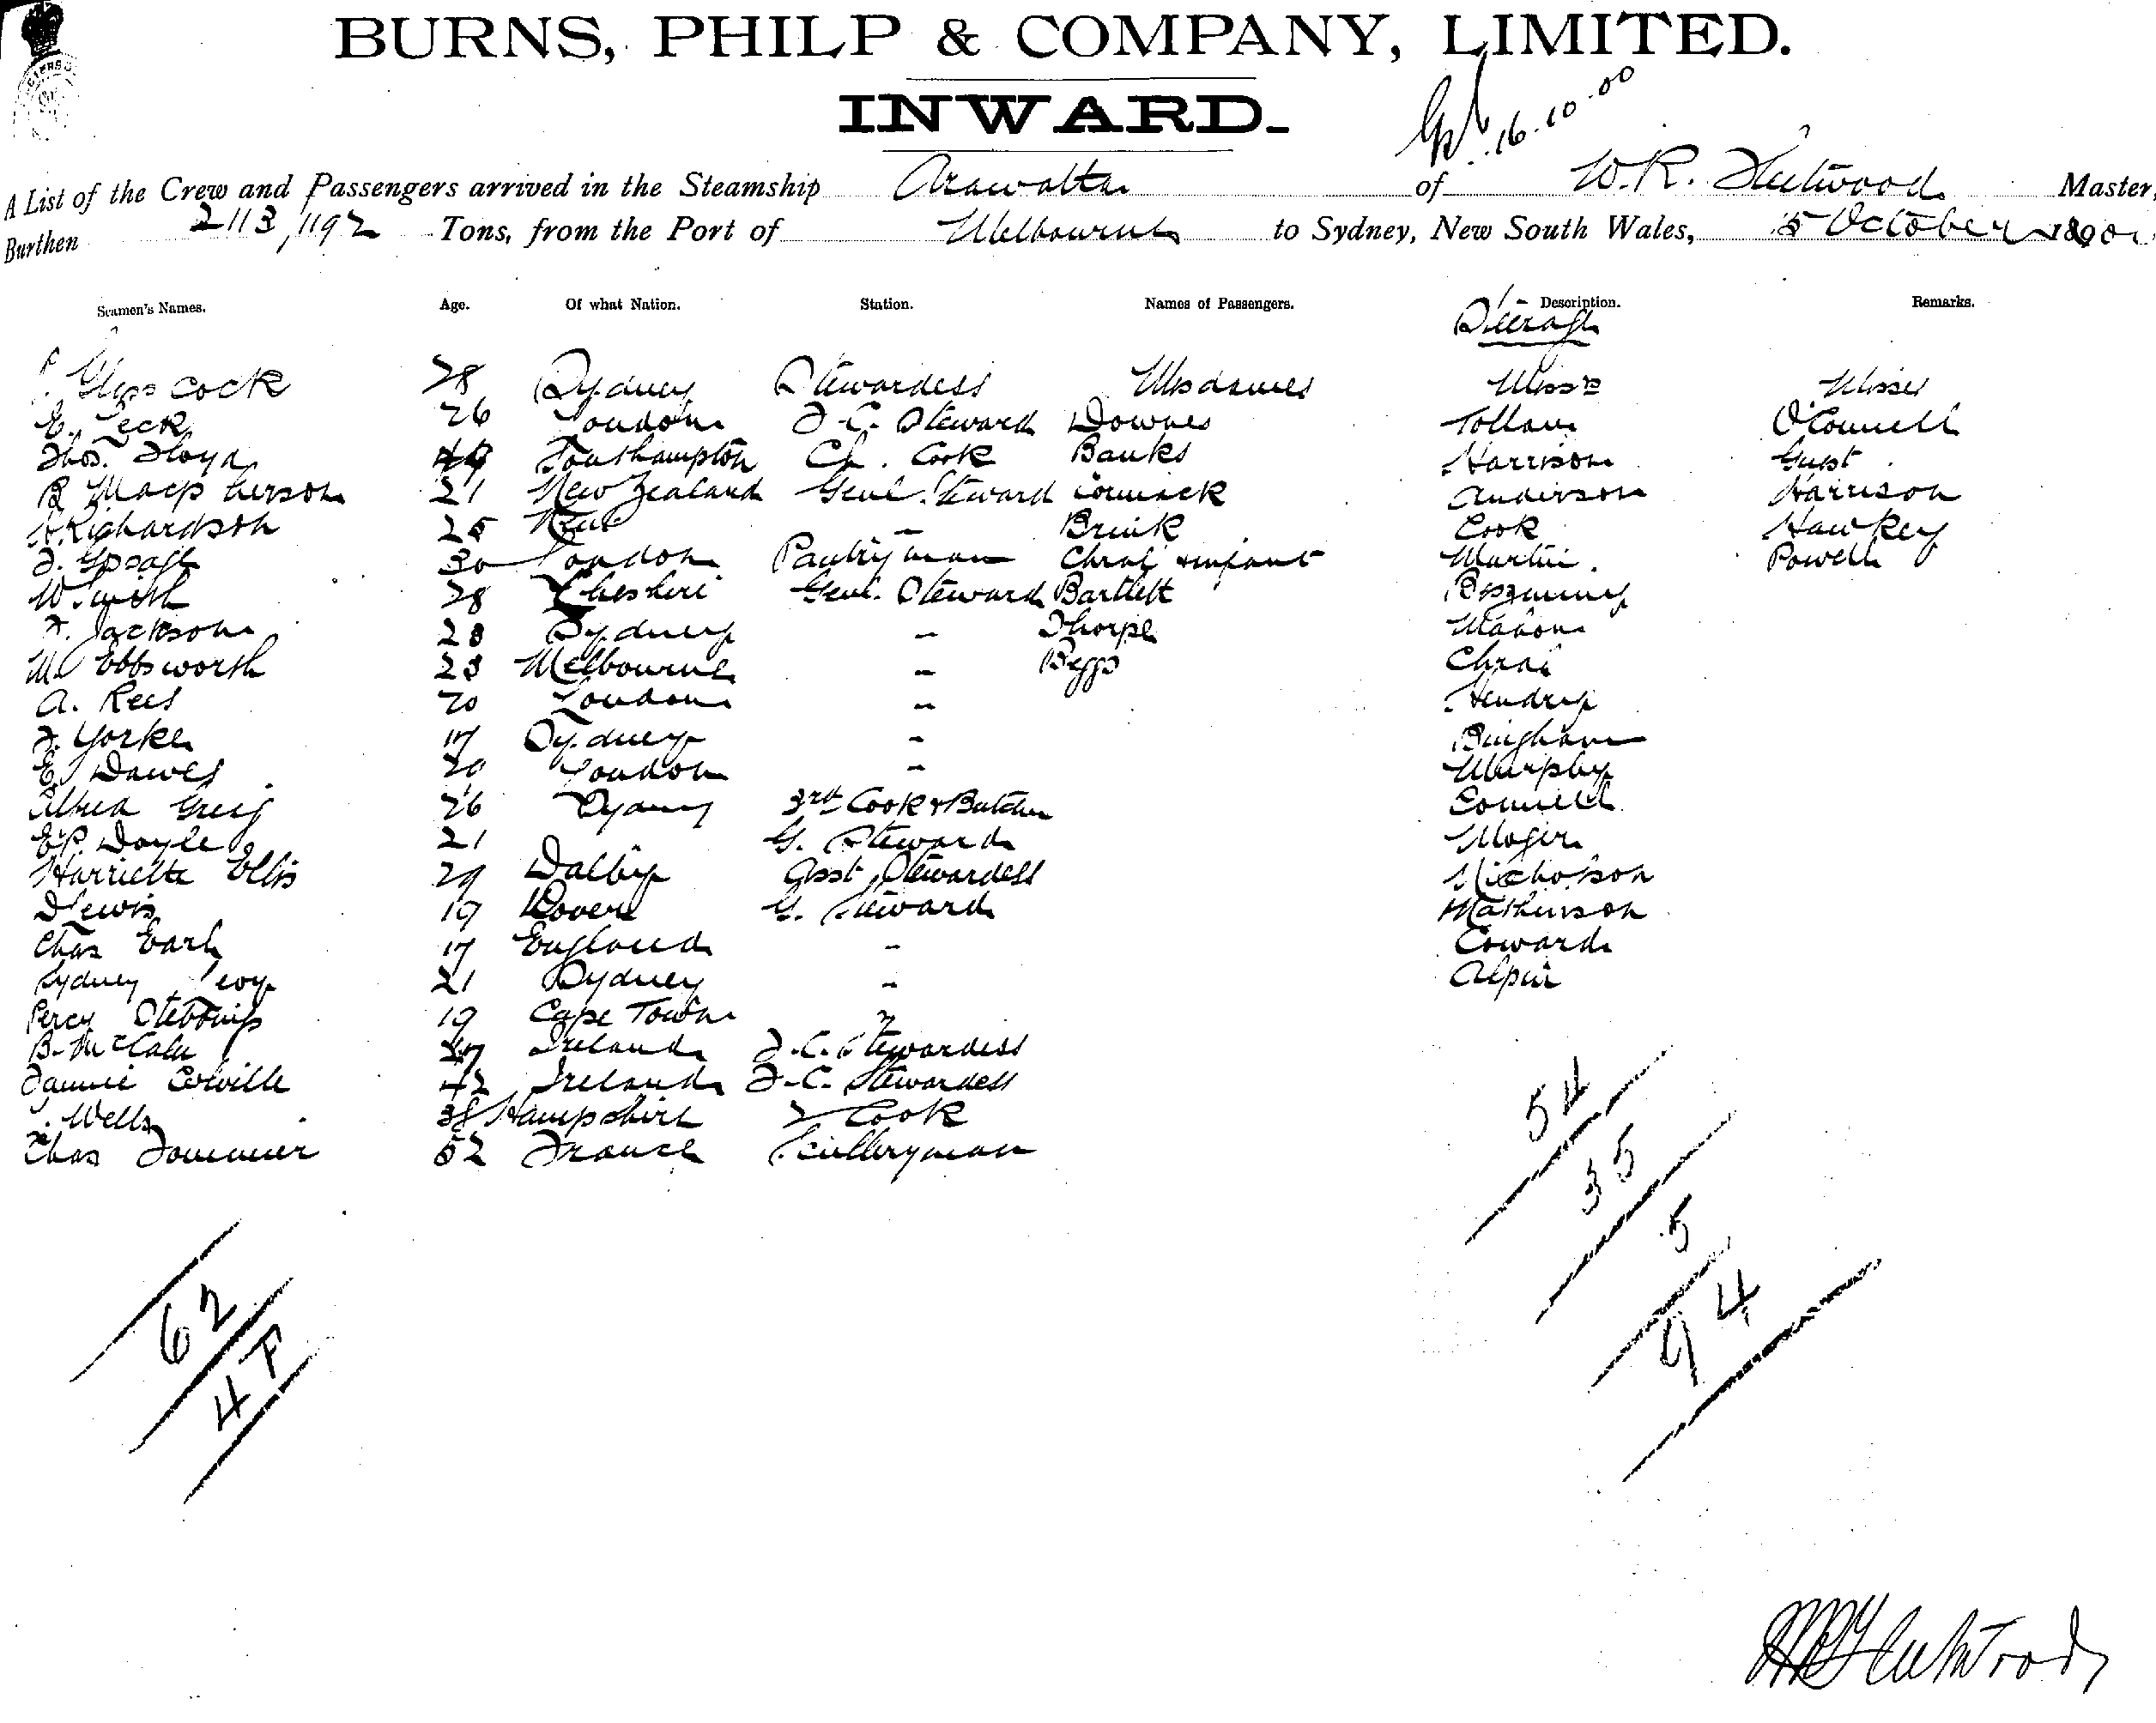 BURNS, PHILP & COMPANY, LIMITED.
INWARD.
16.10.00
A List of the Crew and Passengers arrived in the Steamship Arawatta of W. R. Fleetwood Master,
Burthen 2113/1192 Tons, from the Port of Melbourne to Sydney, New South Wales, 15 October 1900
Seamen's Names. Age. Of what Nation. Station. Names of Passengers. Description. Remarks.
Steerage
Glasscock 28 Sydney Stewardess Mesdames Messrs Misses
E. Teck 26 London F.C. Steward Downes Tollan O'Connell
Thos. Floyd 49 Southampton Ch. Cook Banks Harrison Gust
R Macpherson 21 New Zealand Genl. Steward Cormack Anderson Harrison
Richardson 25 Kent - Brink Cook Hawkey
30 London Pantryman & infant Martin. Powell
W. Smith 28 Cheshire Genl. Steward Bartlett
F. Jackson 28 Sydney - Thorpe Mahon
M Ebbsworth 23 Melbourne - Beggs
A. Rees 20 London - Hendry
F. Yorke 17 Sydney - Bingham
E. Dawes 20 London - Murphy
Alfred Greig 26 Sydney 3rd Cook & Butcher Connell
E.P. Doyle 21 G. Steward Moger
Harriette Ellis 29 Dalby Asst. Stewardess Nicholson
Lewis 19 Dover G. Steward Mathinson
Chas Earl 17 England - Coward
Sydney Levy 21 Sydney - Alpin
Percy Stebbings 19 Cape Town "
B. McCabe 27 Ireland F.C. Stewardess
Fannie Colville 42 Ireland F.C. Stewardess
Wells 38 Hampshire 2 Cook
Chas Sommer 52 France Sculleryman
54
35
5
94
62
4 F
W R Fleetwood